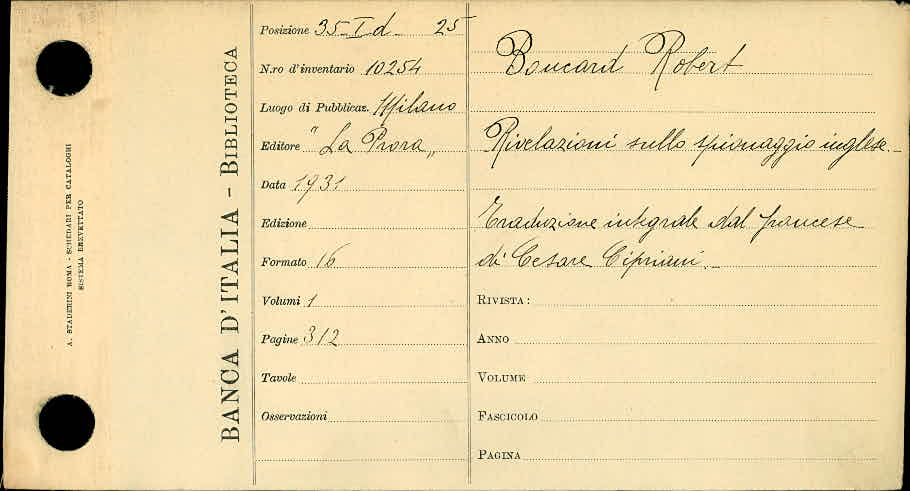 A. STADERINI ROMA - SCHEDARI PER CATALOGHI
SISTEMA BREVETTATO
BANCA D'ITALIA - BIBLIOTECA
Posizione 35-I d- 25
N.ro d'inventario 10254
Luogo di Pubblicaz. Milano
Editore "La Prora"
Data 1931
Edizione
Formato 16
Volumi 1
Pagine 312
Tavole
Osservazioni
Boucard Robert
Rivelazioni sullo spionaggio inglese.-
Traduzione integrale dal francese
di Cesare Cipriani.-
RIVISTA:
ANNO
VOLUME
FASCICOLO
PAGINA